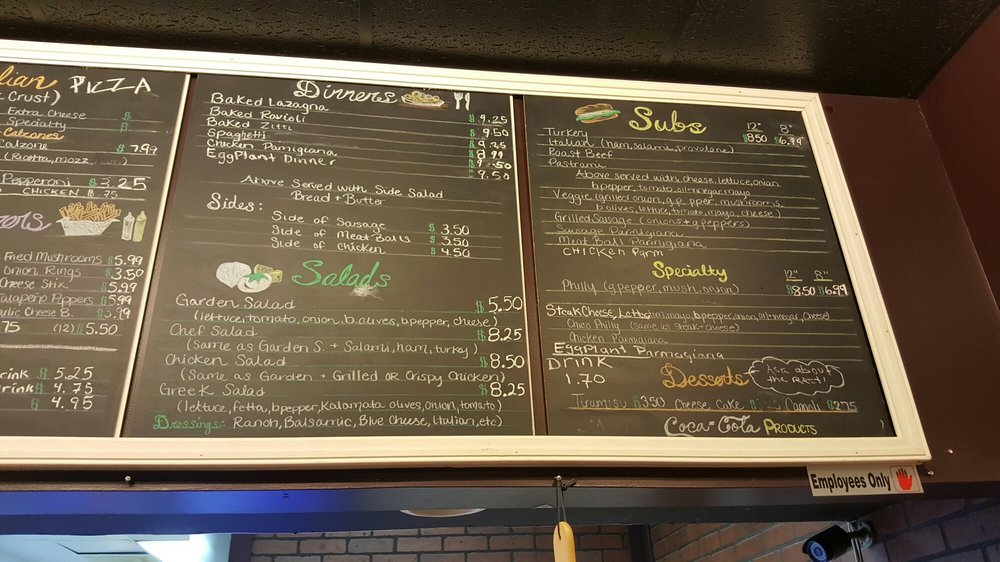 lian PIZZA
Crust)
Extra Cheese
Specialty
Calzones
Calzone $7.99
(Ricotta, mozz,
Pepperoni $3.25
CHICKEN $.75
Fried Mushrooms $5.99
Onion Rings $3.50
Cheese Stix $5.99
Jalapeño Poppers $5.99
Garlic Cheese B.
75 (12) $5.50
rink $5.25
rink $4.75
$4.95
Dinners
Baked Lazagna $9.25
Baked Ravioli $9.50
Baked Zitti $9.25
Spaghetti $8.99
Chicken Parmigiana
EggPlant Dinner $9.50
Above Served with Side Salad
Bread + Butter
Sides:
Side of Sausage $3.50
Side of Meat Balls $3.50
Side of Chicken $4.50
Salads
Garden Salad $5.50
(lettuce, tomato, onion, b.olives, bpepper, cheese)
Chef Salad $8.25
(Same as Garden S. + Salami, ham, turkey)
Chicken Salad $8.50
(Same as Garden + Grilled OR Crispy Chicken)
Greek Salad $8.25
(lettuce, fetta, bpepper, Kalamata olives, onion, tomato)
Dressings: Ranch, Balsamic, Blue Cheese, Italian, etc)
Subs
12" 8"
Turkey $8.50 $6.99
Italian (ham, salami, provolone)
Roast Beef
Pastrami
Above served with, cheese, lettuce, onion
bpepper, tomato, oil+vinegar, mayo
Veggie (grilled onion, g.p.pper, mushrooms,
b.olives, lettuce, tomato, mayo, cheese)
Grilled Sausage (onions + g.peppers)
Sausage Parmigiana
Meat Ball Parmigiana
CHICKEN Parm
Specialty 12" 8"
Philly (g.pepper, mush, onion) $8.50 $6.99
Steak Cheese, tom, mayo, bpepper, onion, oil+vinegar, cheese)
Chico Philly (same as steak+cheese)
Chicken Parmigiana
EggPlant Parmagiana
DRINK
1.70
Desserts
Ask about
the REST!
Tiramisu $3.50 Cheese Cake Cannoli $2.75
Coca-Cola PRODUCTS
Employees Only